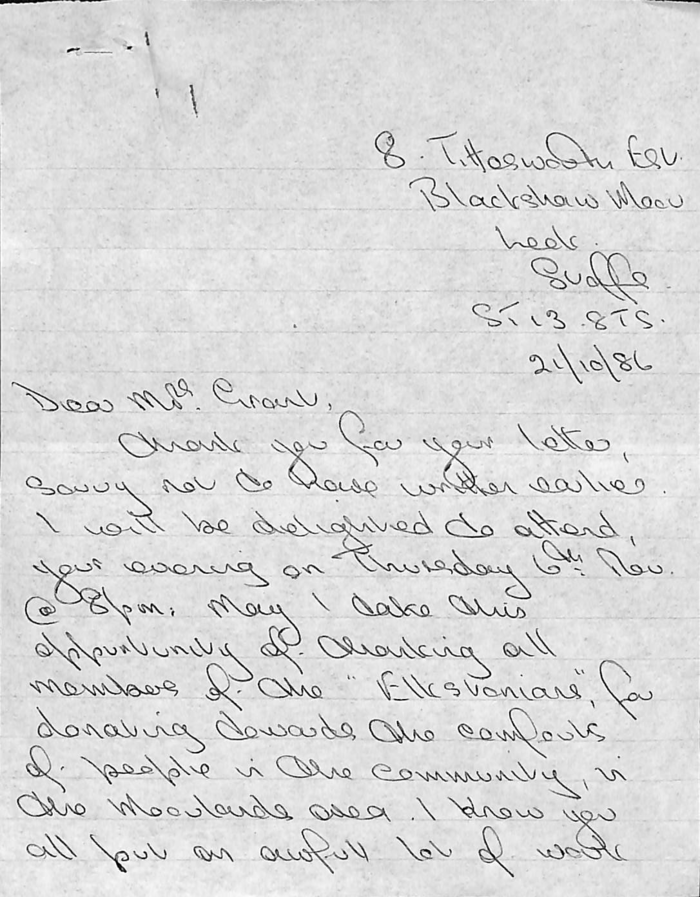 8. Tittesworth Est.
Blackshaw Moor
Leek.
Staffs.
ST13 8TS.
21/10/86
Dear Mrs. Grant,
Thank you for your letter,
sorry not to have written earlier.
I will be delighted to attend,
your evening on Thursday 6th Nov.
@ 8pm. May I take this
opportunity of thanking all
members of the "Elkstonians", for
donating towards the comforts
of people in the community, in
the Moorlands area. I know you
all put an awfull lot of work